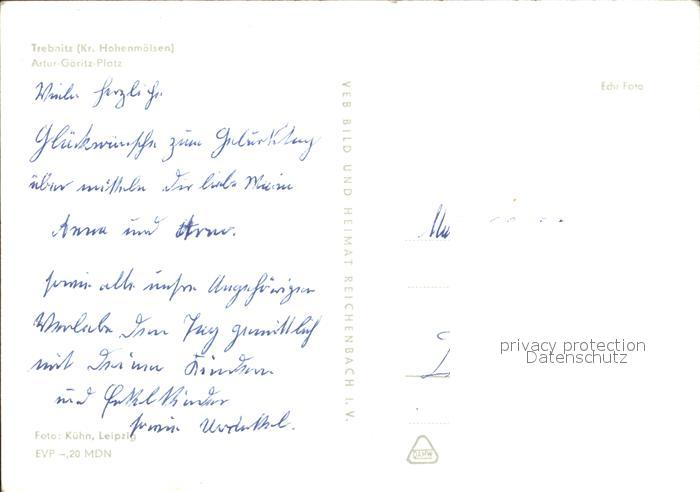 Trebnitz (Kr. Hohenmölsen)
Artur-Göritz-Platz
Echt Foto
Viele herzliche
Glückwünsche zum Geburtstag
übermitteln Dir liebe
Anna und
sowie alle unsre Angehörigen
Verlebe den Tag gemütlich
mit Deinen Kindern
und Enkelkinder
sowie Urenkel.
VEB BILD UND HEIMAT REICHENBACH I. V.
privacy protection
Datenschutz
Foto: Kühn, Leipzig
EVP –,20 MDN